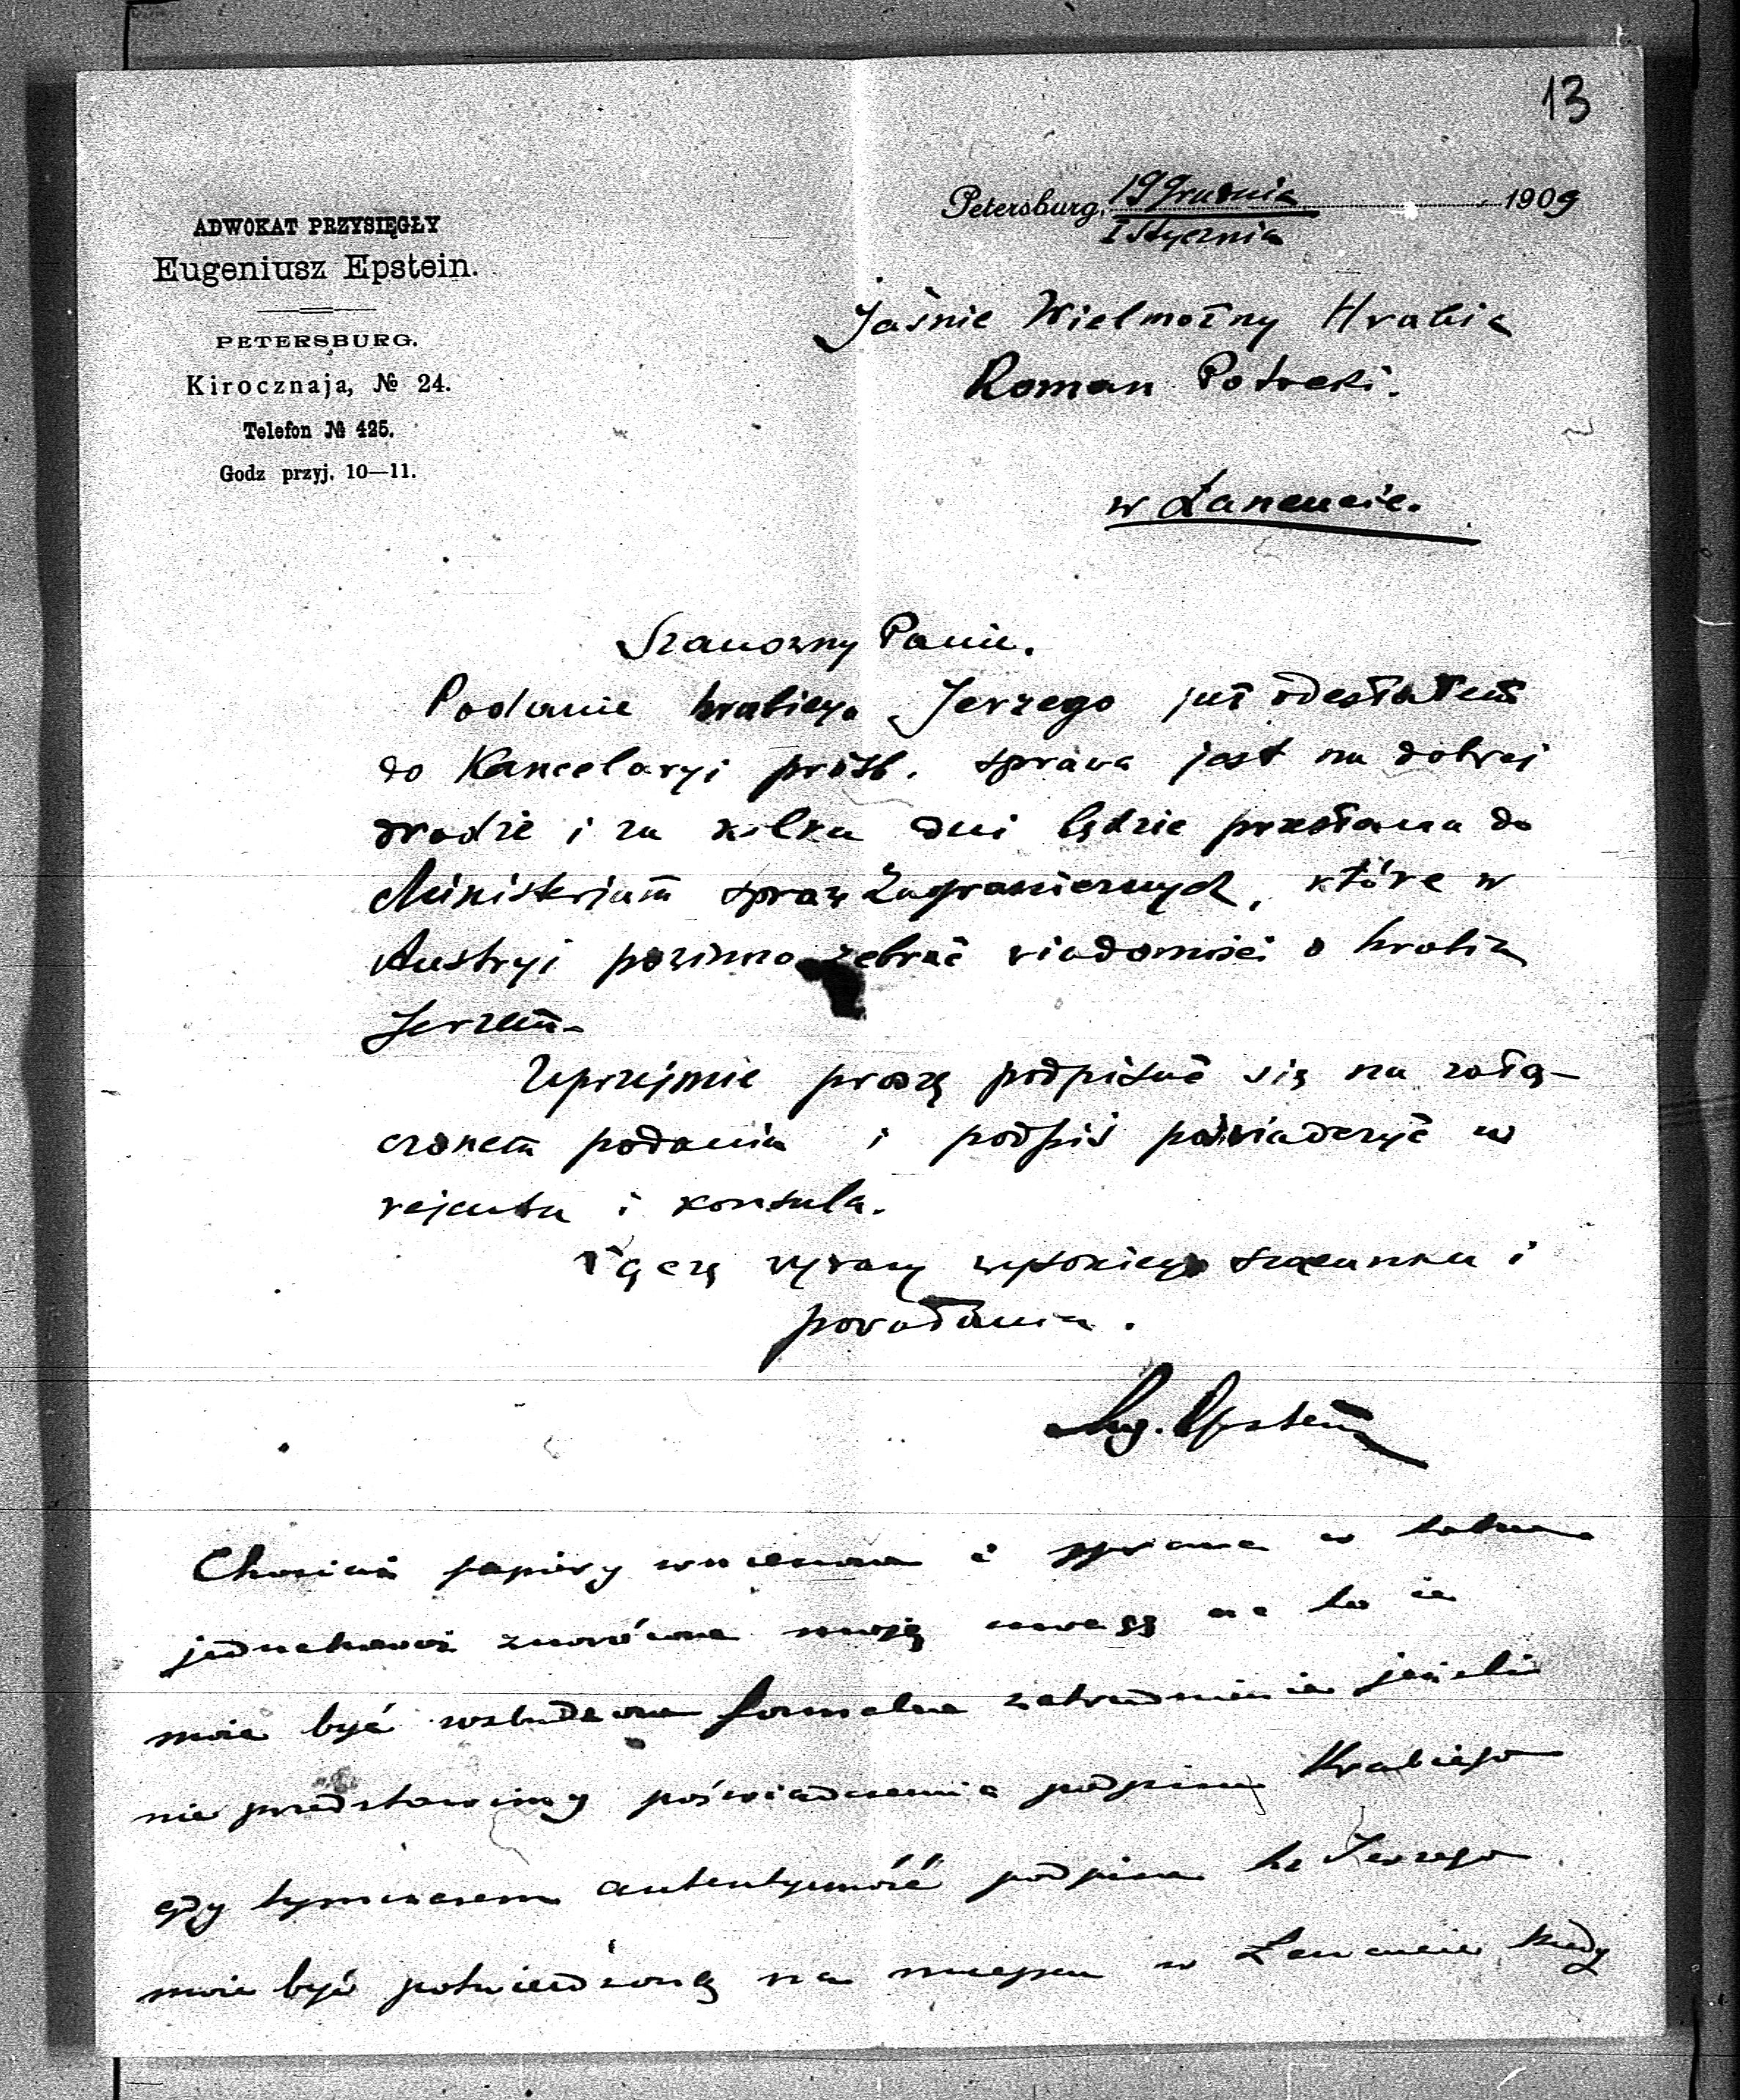 13
Petersburg, 19 Grudnia 1909
1 Stycznia
ADWOKAT PRZYSIĘGŁY
Eugeniusz Epstein.
PETERSBURG.
Kirocznaja, № 24.
Telefon № 425.
Godz przyj. 10—11.
Jaśnie Wielmożny Hrabia
Roman Potocki.
w Łancucie.
Szanowny Panie.
Podanie hrabiego Jerzego już odesłałem
do Kancelaryi próśb. Sprawa jest na dobrej
drodze i za kilka dni będzie przesłana do
Ministerjum spraw Zagranicznych, które w
Austryi powinno zebrać wiadomości o hrabim
Jerzem.
Uprzejmie proszę podpisać się na załą-
czonem podaniu i podpis poświadczyć u
rejenta i konsula.
Łączę wyrazy wysokiego szacunku i
poważania.
Eug. Epstein
Chociaż papiery wniesione i sprawa w
jednakowoż zwrócono moją uwagę na to że
może być wzbudzone formalne zatrudnienie jeżeli
nie przedstawimy poświadczenia podpisu Hrabiego
gdy tymczasem autentyczność podpisu hr Jerzego
może być potwierdzoną na miejscu w Lancucie kiedy